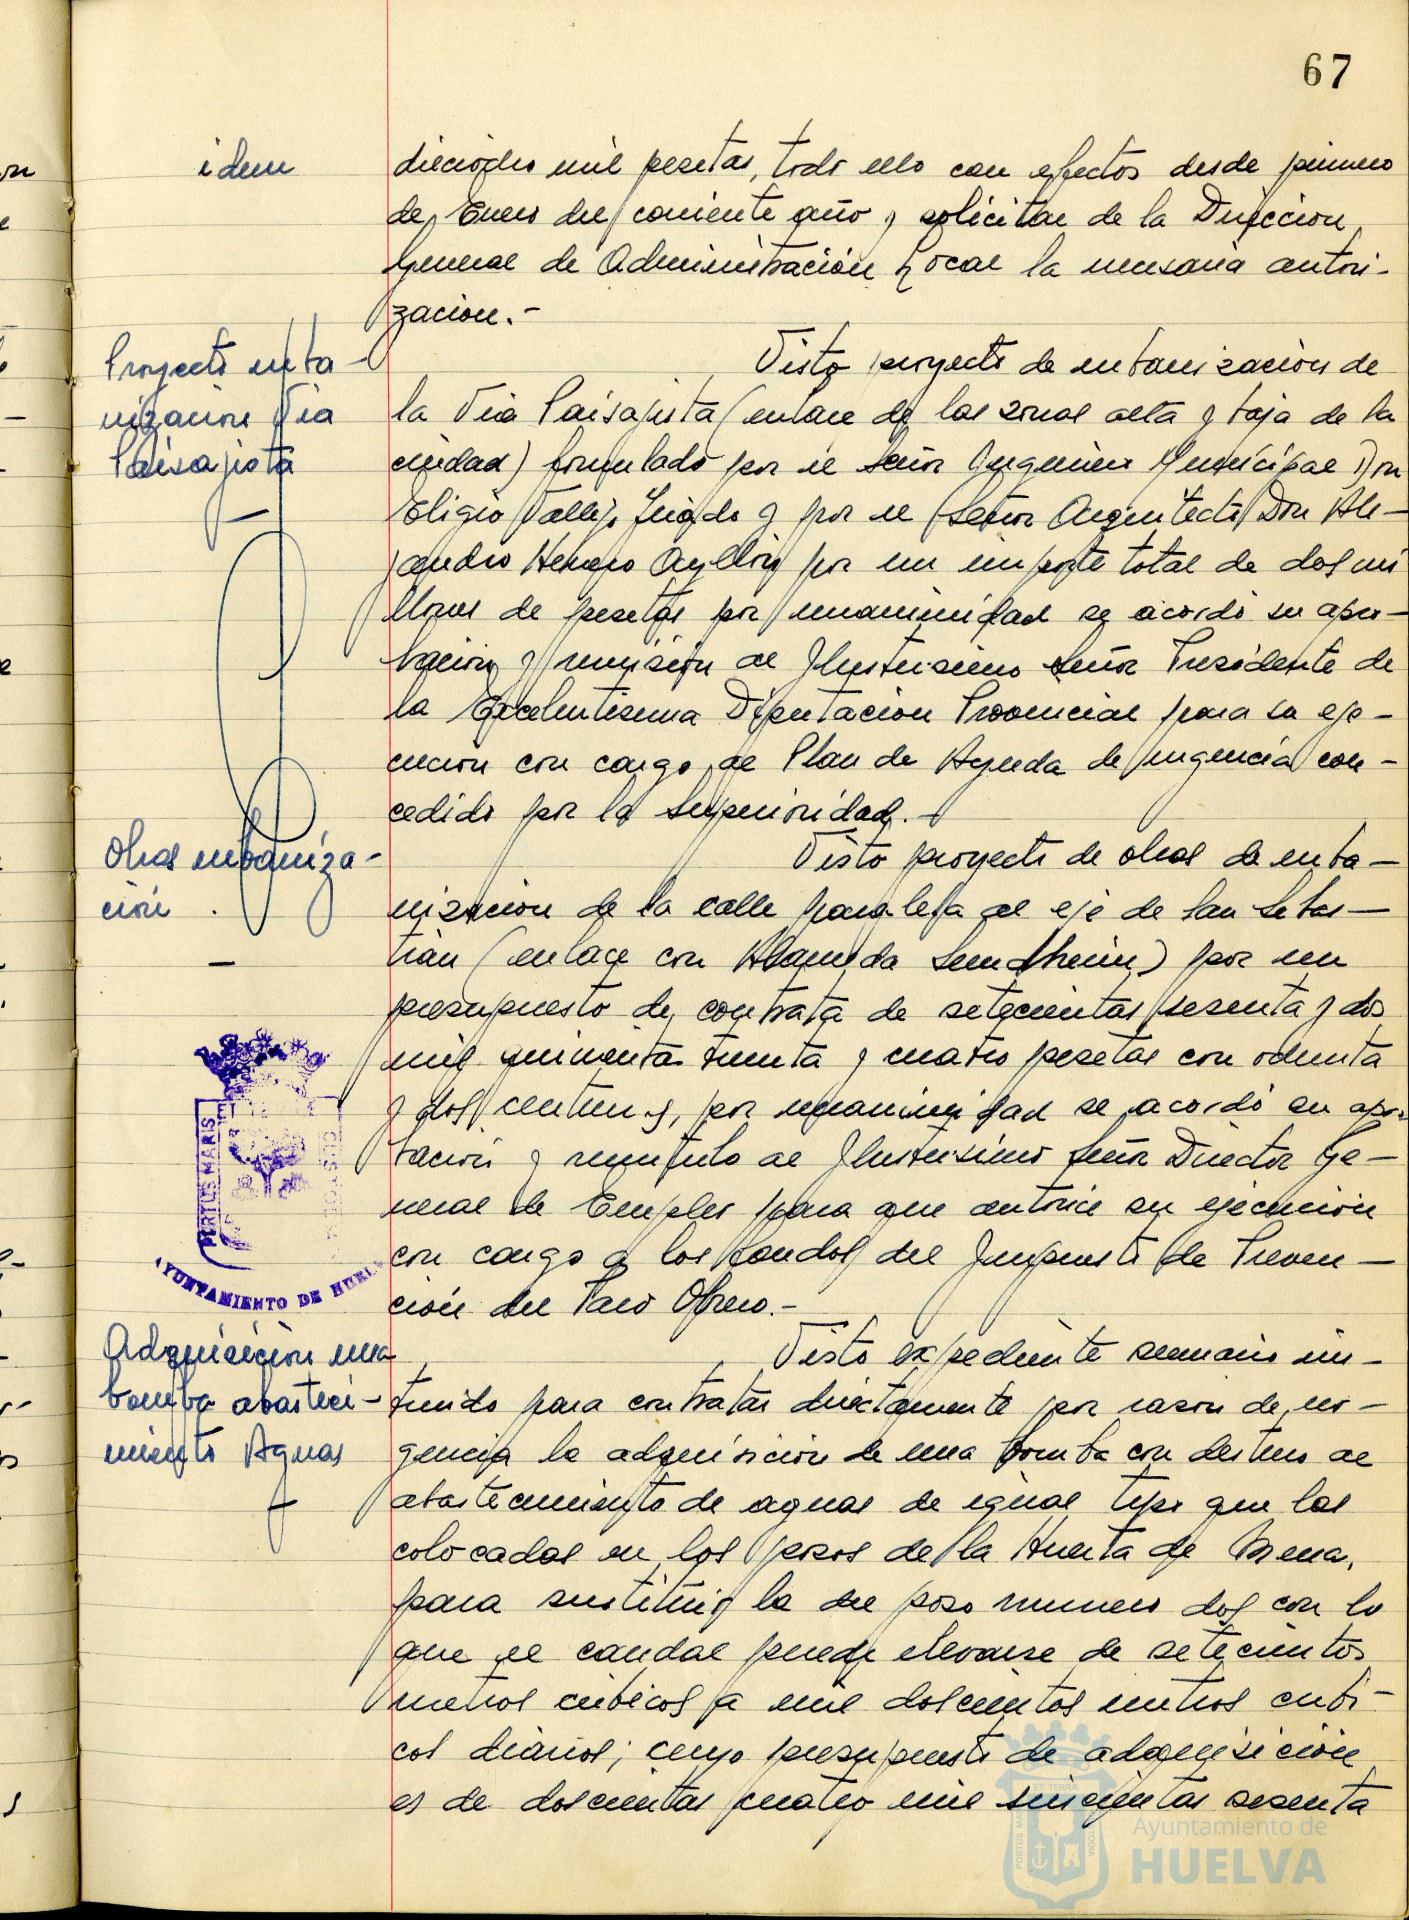 67
idem
dieciocho mil pesetas, todo ello con efectos desde primero
de Enero del corriente año y solicitar de la Direccion
General de Administración Local la necesaria autori-
zacion.-
Proyecto urba-
nizacion Via
Paisajista
Visto proyecto de urbanización de
la Via Paisajista (enlace de las zonas alta y baja de la
ciudad) formulado por el Señor Ingeniero Municipal Don
Eligio Vallejo y por el Señor Arquitecto Don Ale-
jandro Herrero Ayllón por un importe total de dos mi
llones de pesetas por unanimidad se acordó su apro-
bación y remisión al Ilustrisimo Señor Presidente de
la Excelentisima Diputacion Provincial para su eje-
cución con cargo al Plan de Ayuda de urgencia con-
cedido por la Superioridad.-
Obras urbaniza-
ción.
Visto proyecto de obras de urba-
nizacion de la calle paralela al eje de San Sebas-
tián (enlace con Alameda Sundheim) por un
presupuesto de contrata de setecientas sesenta y dos
mil quinientas treinta y cuatro pesetas con ochenta
y dos centimos, por unanimidad se acordó su apro
bación y remitirlo al Ilustrisimo Señor Director Ge-
neral de Empleo para que autorice su ejecución
con cargo a los fondos del Impuesto de Preven-
ción del Paro Obrero.-
PORTUS MARIS
AYUNTAMIENTO DE HUELVA
Adquisición una
bomba abasteci-
miento Aguas
Visto expediente sumario ins-
truido para contratar directamente por razon de ur-
gencia la adquisición de una bomba con destino al
abastecimiento de aguas de igual tipo que las
colocadas en los pozos de la Huerta de Mena,
para sustituir la del pozo numero dos con lo
que el caudal puede elevarse de setecientos
metros cúbicos a mil doscientos metros cubi-
cos diarios; cuyo presupuesto de adquisición
es de doscientas cuatro mil seiscientas sesenta
Ayuntamiento de
HUELVA